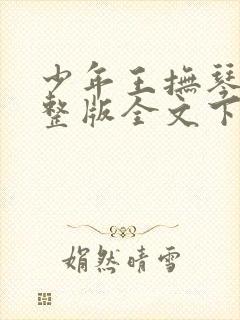 少年王撫琴
整版全文下
娟然晴雪